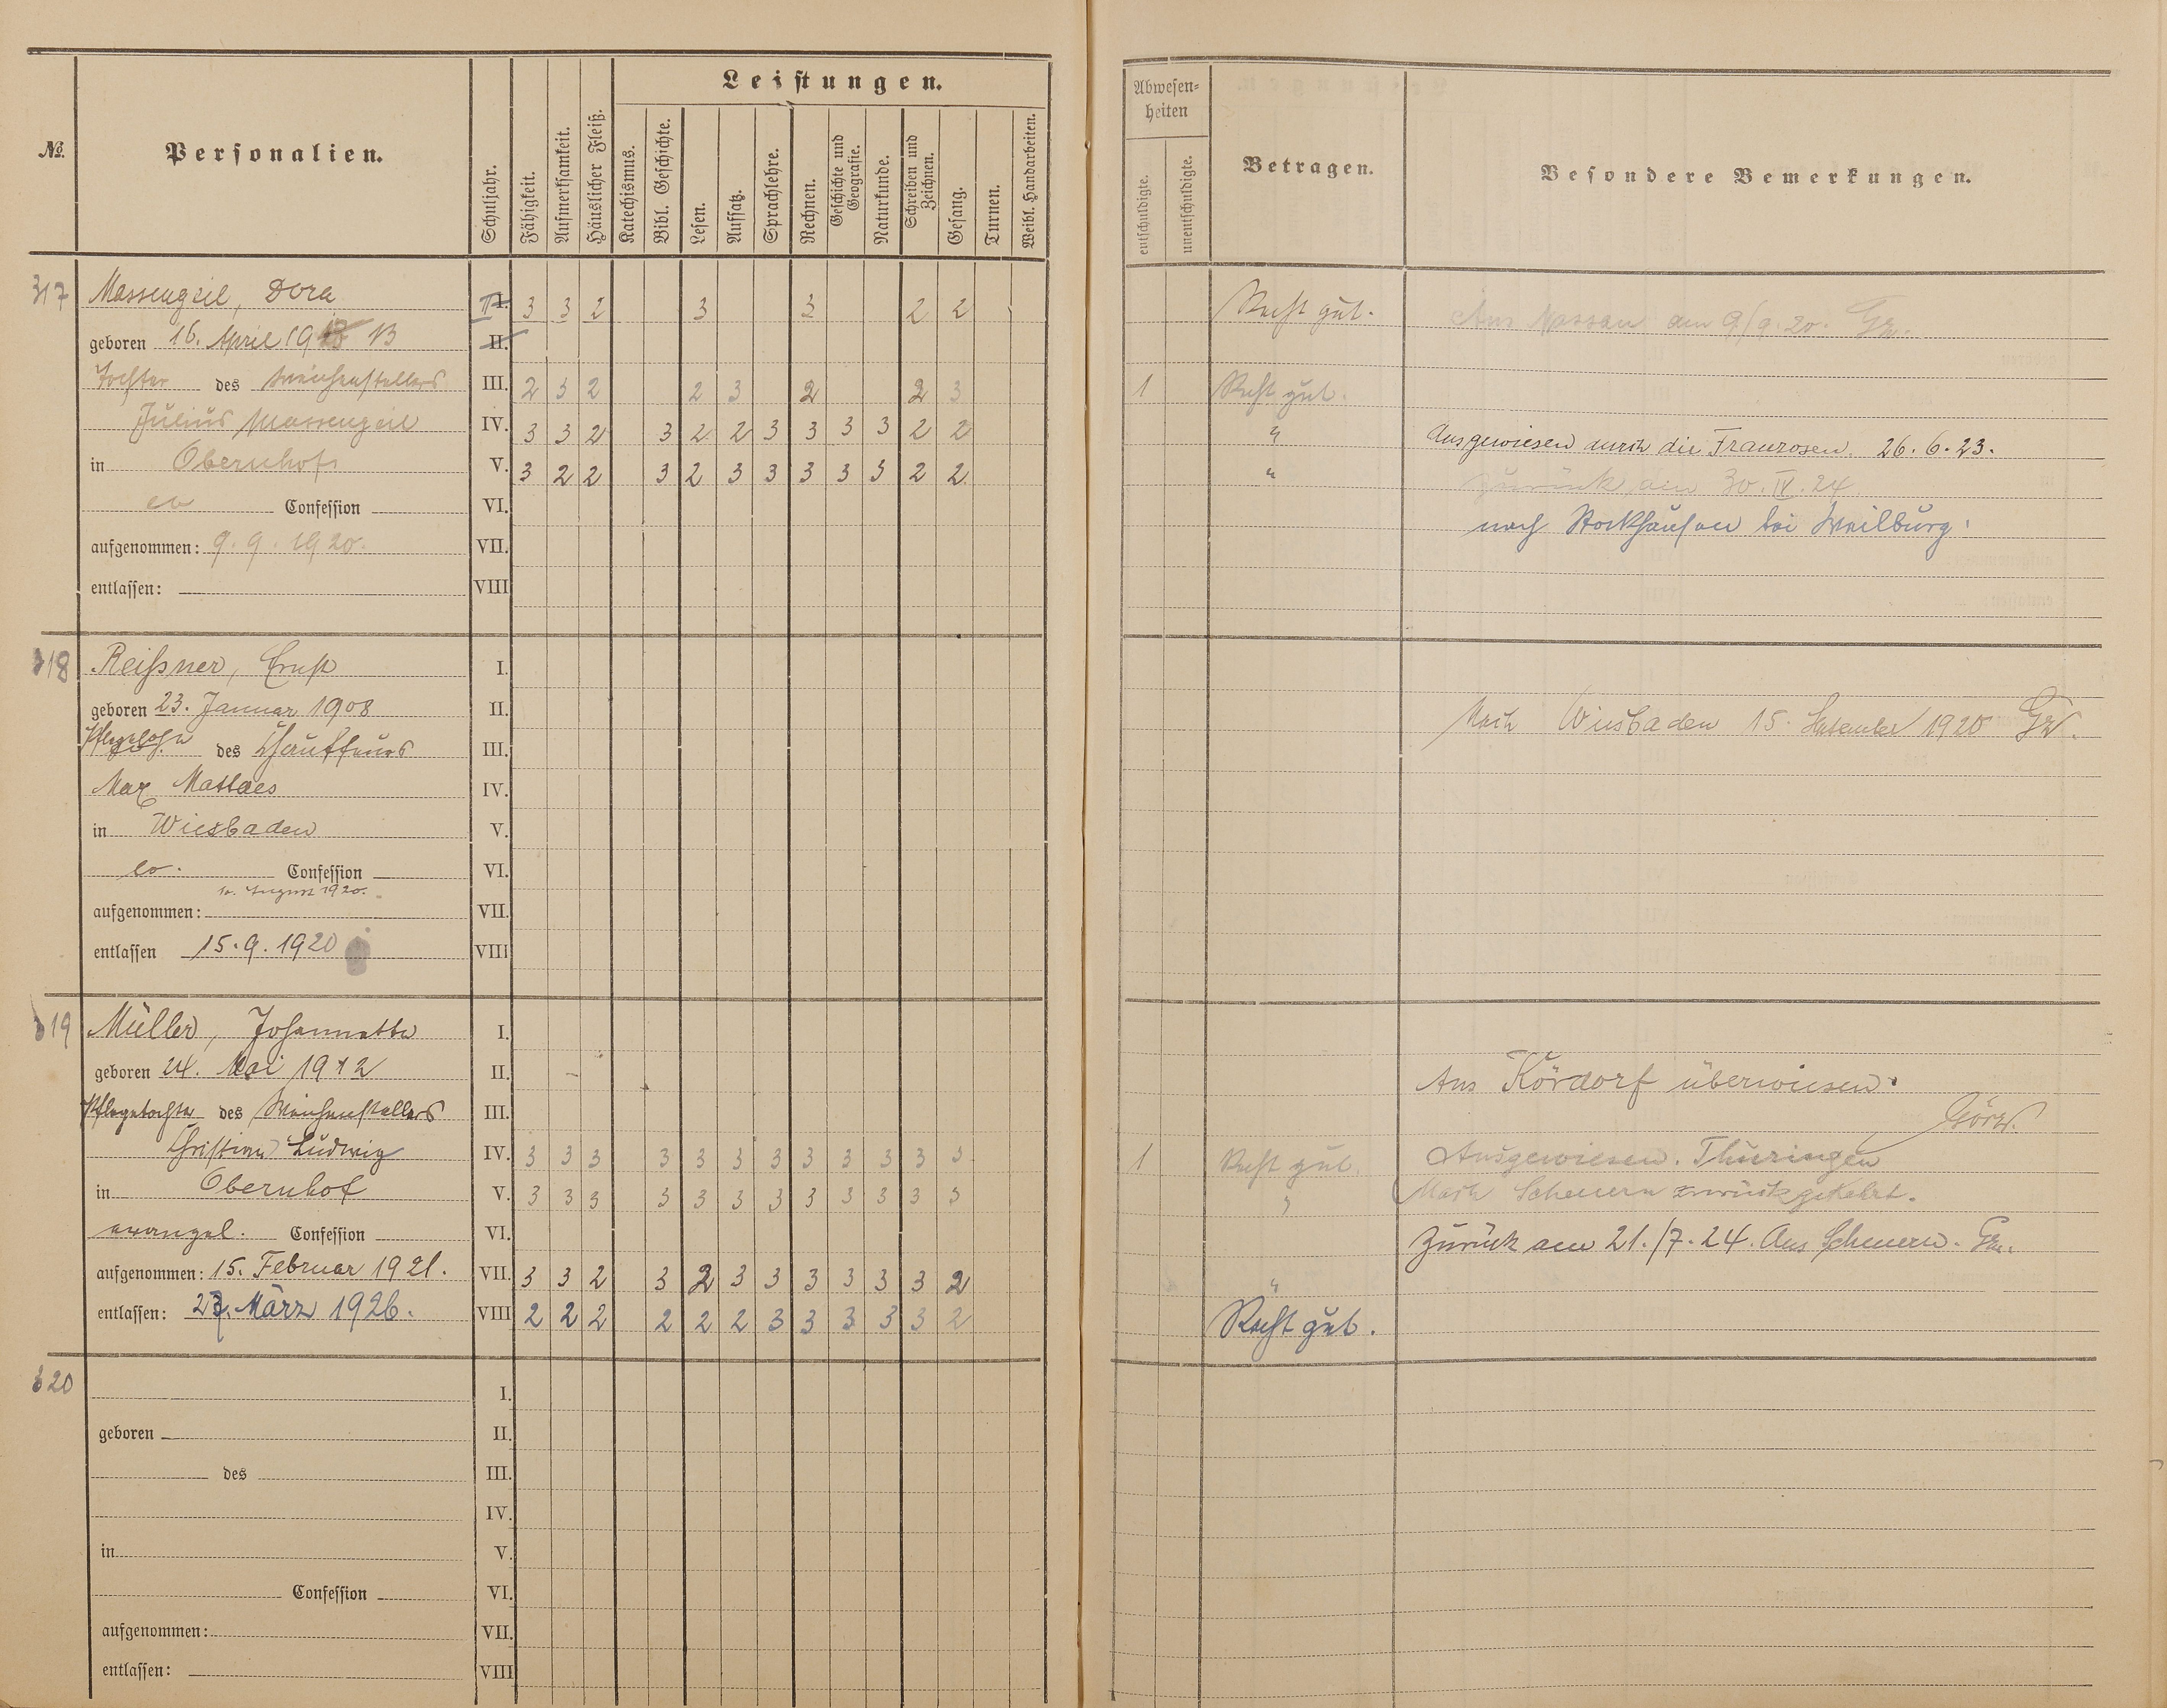 Leistungen.
Abwesen-
heiten
№.
Personalien.
Schuljahr.
Fähigkeit.
Aufmerksamkeit.
Häuslicher Fleiß.
Katechismus.
Bibl. Geschichte.
Lesen.
Aufsatz.
Sprachlehre.
Rechnen.
Geschichte und
Geografie.
Naturkunde.
Schreiben und
Zeichnen.
Gesang.
Turnen.
Weibl. Handarbeiten.
entschuldigte.
unentschuldigte.
Betragen.
Besondere Bemerkungen.
317 Massengeil, Dora
3 3 2 3 3 2 2 Recht gut. Aus Nassau am 9/9.20. Gz.
geboren 16. April 19 13 II.
Tochter des Weichenstellers III. 2 3 2 2 3 2 2 3 1 Recht gut.
Julius Massengeil IV. 3 3 2 3 2 2 3 3 3 3 2 2 " Ausgewiesen durch die Franzosen. 26.6.23.
in Obernhof V. 3 2 2 3 2 3 3 3 3 3 2 2 " Zurück am 30.IV.24.
ev Confession VI. nach Stockhausen bei Weilburg.
aufgenommen: 9.9.1920. VII.
entlassen: VIII
318 Reißner, Ernst I.
geboren 23. Januar 1908 II. Nach Wiesbaden 15. September 1920 Gz.
Pflegesohn des Chauffeurs III.
Max Mattaes IV.
in Wiesbaden V.
ev. Confession VI.
August 1920.
aufgenommen: VII.
entlassen 15.9.1920 VIII
319 Müller, Johannette I.
geboren 24. Mai 1912 II. Aus Kördorf überwiesen.
Pflegetochter des Weichenstellers III. Görz.
Christian Ludwig IV. 3 3 3 3 3 3 3 3 3 3 3 3 1 Recht gut. Ausgewiesen. Thüringen
in Obernhof V. 3 3 3 3 3 3 3 3 3 3 3 3 " Nach Scheuern zurückgekehrt.
evangel. Confession VI. Zurück am 21./7.24. Aus Scheuern. Gz.
aufgenommen: 15. Februar 1921. VII. 3 3 2 3 2 3 3 3 3 3 3 2 "
entlassen: März 1926. VIII 2 2 2 2 2 2 3 3 3 3 3 2 Recht gut.
320 I.
geboren II.
des III.
IV.
in V.
Confession VI.
aufgenommen: VII.
entlassen: VIII